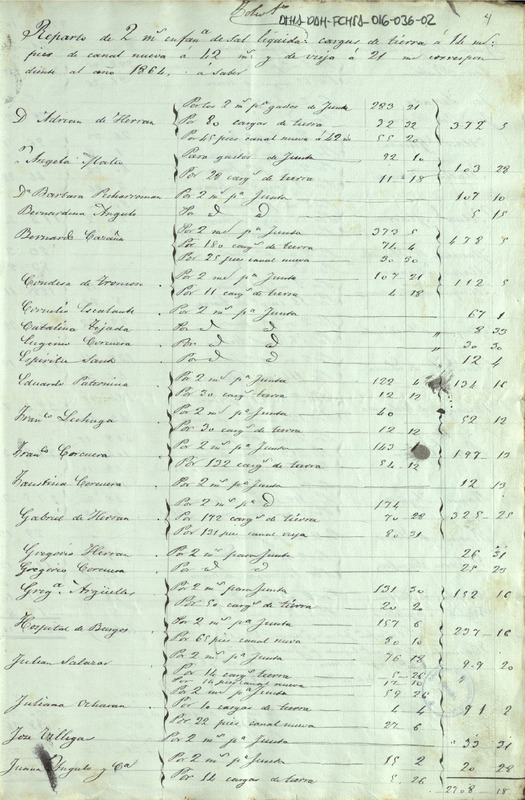 DHA-ODH-FCHSA-016-036-02
4
Reparto de 2 mrs en fana de sal líquida: cargas de tierra á 14 mrs:
pies de canal nueva á 42 mrs y de vieja a 21 mrs correspon
diente al año 1864, á saber
Dn Adrian de Herran Por los 2 mrs pa gastos de Junta 283 21
Por 80 cargas de tierra 32 32 372 5
Por 45 pies canal nueva á 42 m 55 20
Angela Para gastos de Junta 92 10
Por 28 cargs de tierra 11 18 103 28
Da Barbara Por 2 mrs pa Junta 107 10
Bernardina Angulo Por d d 5 15
Bernardo Por 2 mrs pa Junta 373 5
Por 180 cargs de tierra 74 4 478 5
Por 25 pies canal nueva 30 30
Condesa de Por 2 mrs pa Junta 107 21
Por 11 cargs de tierra 4 18 112 5
Cornelio Escalante Por 2 mrs pa Junta 67 1
Catalina Tejada Por d d " 8 33
Eugenio Corcuera Por d d " 30 30
Espiritu Santo Por d d 12 4
Eduardo Paternina Por 2 mrs pa Junta 122 4
Por 30 cargs tierra 12 12 134 16
Franco Por 2 mrs pa Junta 40
Por 30 cargs de tierra 12 12 52 12
Franco Corcuera Por 2 mrs pa Junta 143 1
Por 132 cargs de tierra 54 12 197 13
Faustina Corcuera Por 2 mrs pa Junta 12 13
Gabriel de Herran Por 2 mrs pa d 174
Por 172 cargs de tierra 70 28 325 25
Por 131 pies canal vieja 80 31
Gregorio Herran Por 2 mrs para Junta 26 31
Gregorio Corcuera Por d d 25 23
Grega Argüelles Por 2 mrs para Junta 131 30
Por 50 cargs de tierra 20 20 152 16
Hospital de Burgos Por 2 mrs pa Junta 157 6
Por 65 pies canal nueva 80 10 237 16
Julian Salazar Por 2 mrs pa Junta 76 18
Por 14 cargs tierra 5 26 99 20
Por 14 pies canal nueva 17 10
Juliana Por 2 mrs pa Junta 59 26
Por 10 cargas de tierra 4 4 91 2
Por 22 pies canal nueva 27 6
Jose Por 2 mrs pa Junta " 33 31
Juana Angulo y Ca Por 2 mrs pa Junta 15 2
Por 14 cargas de tierra 5 26 20 28
2708 18